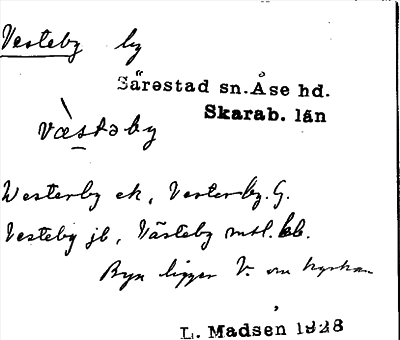 Vesteby by
Särestad sn. Åse hd.
Skarab. län
væ̀stəby
Westerby ek, Vesterby. G.
Vesteby jb, Västeby mtl. kb.
Byn ligger V. om kyrkan
L. Madsen 1928